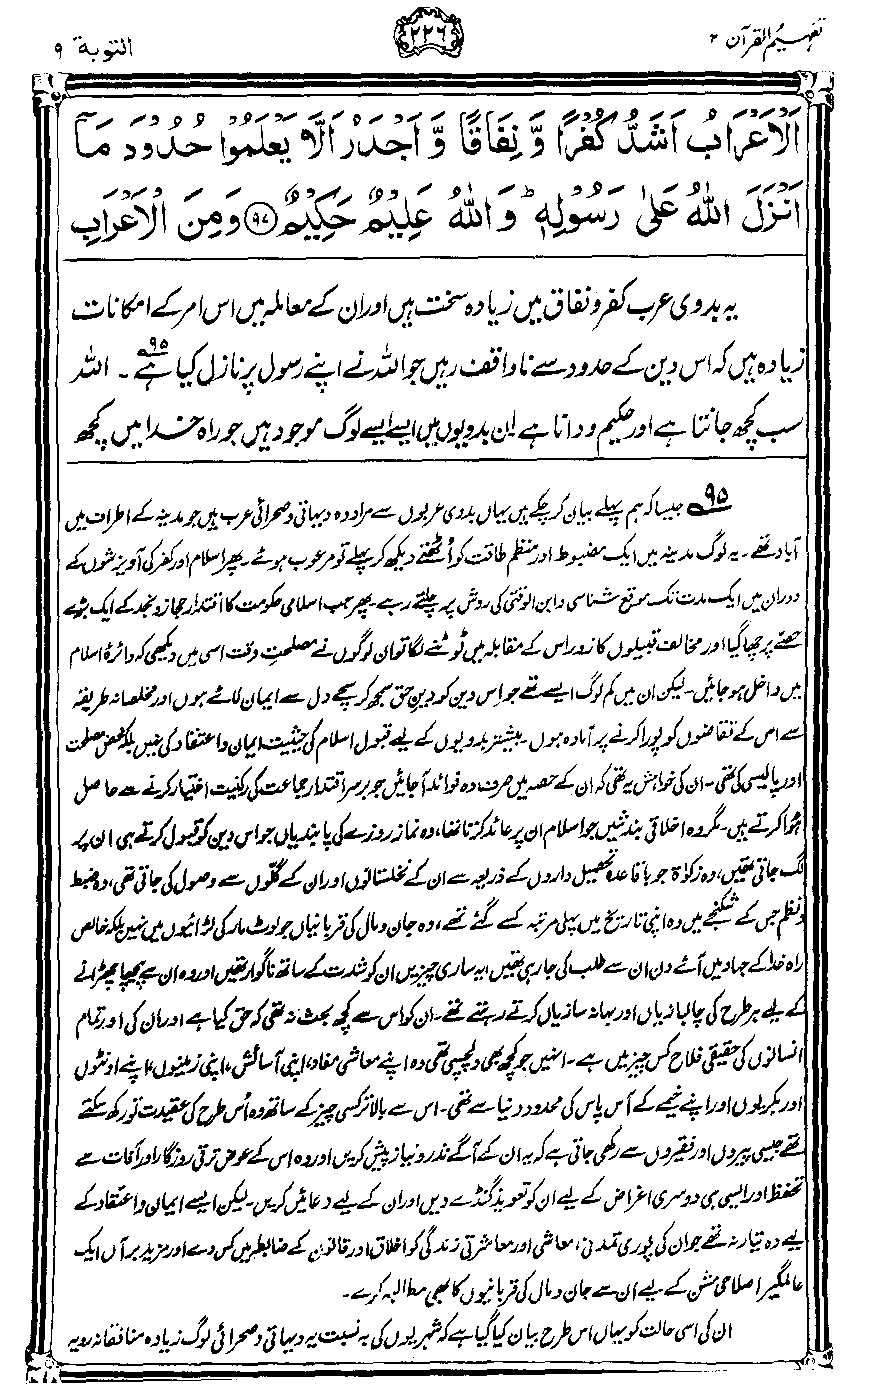 تفہیم القرآن ۲
۲۲۶
التوبة ۹
اَلْاَعْرَابُ اَشَدُّ كُفْرًا وَّ نِفَاقًا وَّ اَجْدَرُ اَلَّا يَعْلَمُوْا حُدُوْدَ مَاۤ
اَنْزَلَ اللّٰهُ عَلٰى رَسُوْلِهٖ ؕ وَ اللّٰهُ عَلِيْمٌ حَكِيْمٌ ﴿۹۷﴾ وَ مِنَ الْاَعْرَابِ
یہ بدوی عرب کفر و نفاق میں زیادہ سخت ہیں اور ان کے معاملہ میں اس امر کے امکانات
زیادہ ہیں کہ اس دین کے حدود سے ناواقف رہیں جو اللہ نے اپنے رسول پر نازل کیا ہے۹۵۔ اللہ
سب کچھ جانتا ہے اور حکیم و دانا ہے۔ ان بدویوں میں ایسے ایسے لوگ موجود ہیں جو راہ خدا میں کچھ
۹۵ جیسا کہ ہم پہلے بیان کر چکے ہیں یہاں بدوی عربوں سے مراد وہ دیہاتی و صحرائی عرب ہیں جو مدینہ کے اطراف میں
آباد تھے۔ یہ لوگ مدینہ میں ایک مضبوط اور منظم طاقت کو اُٹھتے دیکھ کر پہلے تو مرعوب ہوئے۔ پھر اسلام اور کفر کی آویزشوں کے
دوران میں ایک مدت تک موقع شناسی و ابن الوقتی کی روش پر چلتے رہے۔ پھر جب اسلامی حکومت کا اقتدار حجاز و نجد کے ایک بڑے
حصے پر چھا گیا اور مخالف قبیلوں کا زور اس کے مقابلہ میں ٹوٹنے لگا تو ان لوگوں نے مصلحتِ وقت اسی میں دیکھی کہ دائرۂ اسلام
میں داخل ہو جائیں۔ لیکن ان میں کم لوگ ایسے تھے جو اس دین کو دینِ حق سمجھ کر سچے دل سے ایمان لائے ہوں اور مخلصانہ طریقہ
سے اس کے تقاضوں کو پورا کرنے پر آمادہ ہوں۔ بیشتر بدویوں کے لیے قبول اسلام کی حیثیت ایمان و اعتقاد کی نہیں بلکہ محض مصلحت
اور پالیسی کی تھی۔ ان کی خواہش یہ تھی کہ ان کے حصہ میں صرف وہ فوائد آ جائیں جو برسراقتدار جماعت کی رکنیت اختیار کرنے سے حاصل
ہُوا کرتے ہیں۔ مگر وہ اخلاقی بندشیں جو اسلام ان پر عائد کرتا تھا، وہ نماز روزے کی پابندیاں جو اس دین کو قبول کرتے ہی ان پر
لگ جاتی تھیں، وہ زکوٰۃ جو باقاعدہ تحصیل داروں کے ذریعہ سے ان کے نخلستانوں اور ان کے گلّوں سے وصول کی جاتی تھی، وہ ضبط
و نظم جس کے شکنجے میں وہ اپنی تاریخ میں پہلی مرتبہ کسے گئے تھے، وہ جان و مال کی قربانیاں جو لوٹ مار کی لڑائیوں میں نہیں بلکہ خالص
راہِ خدا کے جہاد میں آئے دن ان سے طلب کی جا رہی تھیں، یہ ساری چیزیں ان کو شدت کے ساتھ ناگوار تھیں اور وہ ان سے پیچھا چھڑانے
کے لیے ہر طرح کی چالبازیاں اور بہانہ سازیاں کرتے رہتے تھے۔ ان کو اس سے کچھ بحث نہ تھی کہ حق کیا ہے اور ان کی اور تمام
انسانوں کی حقیقی فلاح کس چیز میں ہے۔ انہیں جو کچھ بھی دلچسپی تھی وہ اپنے معاشی مفاد، اپنی آسائش، اپنی زمینوں، اپنے اونٹوں
اور بکریوں اور اپنے خیمے کے آس پاس کی محدود دنیا سے تھی۔ اس سے بالاتر کسی چیز کے ساتھ وہ اُس طرح کی عقیدت تو رکھ سکتے
تھے جیسی پیروں اور فقیروں سے رکھی جاتی ہے کہ یہ ان کے آگے نذر و نیاز پیش کریں اور وہ اس کے عوض ترقیٔ روزگار اور آفات سے
تحفظ اور ایسی ہی دوسری اغراض کے لیے ان کو تعویذ گنڈے دیں اور ان کے لیے دعائیں کریں۔ لیکن ایسے ایمان و اعتقاد کے
لیے وہ تیار نہ تھے جو ان کی پوری تمدنی، معاشی اور معاشرتی زندگی کو اخلاق اور قانون کے ضابطہ میں کس دے اور مزید برآں ایک
عالمگیر اصلاحی مشن کے لیے ان سے جان و مال کی قربانیوں کا بھی مطالبہ کرے۔
ان کی اسی حالت کو یہاں اس طرح بیان کیا گیا ہے کہ شہریوں کی بہ نسبت یہ دیہاتی و صحرائی لوگ زیادہ منافقانہ رویہ